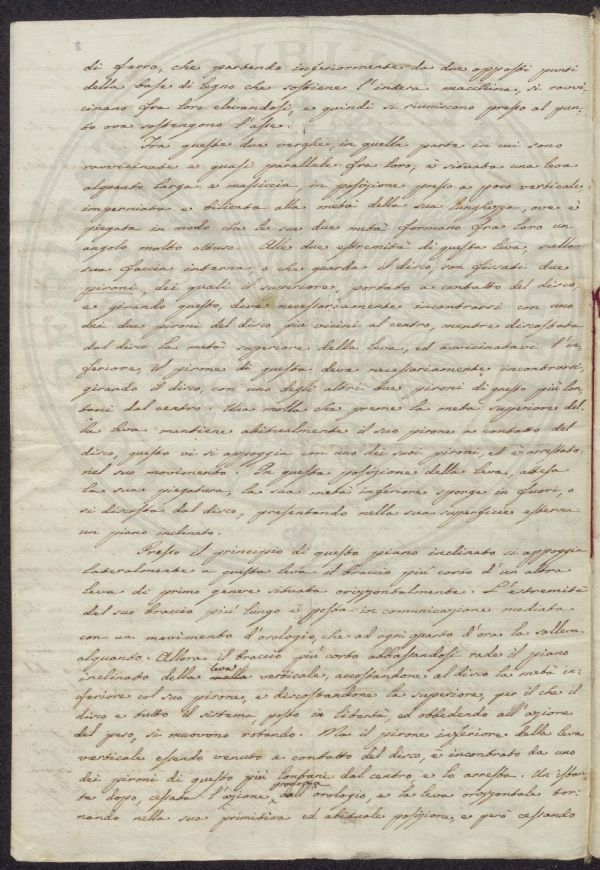 2
di ferro, che partendo inferiormente da due opposti punti
della base di legno che sostiene l'intera macchina, si ravvi-
cinano fra loro elevandosi, e quindi si riuniscono presso al pun-
to ove sostengono l'asse.
Fra queste due verghe, in quella parte in cui sono
ravvicinate e quasi parallele fra loro, è situata una leva
alquanto larga e massiccia, in posizione presso a poco verticale,
imperniata e bilicata alla metà della sua lunghezza, ove è
piegata in modo che le sue due metà formano fra loro un
angolo molto ottuso. Alle due estremità di questa leva, sulla
sua faccia interna, o che guarda il disco, son fissati due
pironi, dei quali il superiore, portato a contatto del disco,
e girando questo, deve necessariamente incontrarsi con uno
dei due pironi del disco più vicini al centro, mentre discostata
dal disco la metà superiore della leva, ed avvicinatavi l'in-
feriore, il pirone di questa deve necessariamente incontrarsi,
girando il disco, con uno degli altri due pironi di questo più lon-
tani dal centro. Una molla che preme la metà superiore del-
la leva mantiene abitualmente il suo pirone a contatto del
disco, questo vi si appoggia con uno dei suoi pironi, ed è arrestato
nel suo movimento. In questa posizione della leva, attesa
la sua piegatura, la sua metà inferiore sporge in fuori, o
si discosta dal disco, presentando nella sua superficie esterna
un piano inclinato.
Presso il principio di questo piano inclinato si appoggia
lateralmente a questa leva il braccio più corto d'un altra
leva di primo genere situata orizzontalmente. L'estremità
del suo braccio più lungo è posta in comunicazione mediata
con un movimento d'orologio, che ad ogni quarto d'ora la solleva
alquanto. Allora il braccio più corto abbassandosi rade il piano
inclinato della leva verticale, accostandone al disco la metà in-
feriore col suo pirone, e discostandone la superiore, per il che il
disco e tutto il sistema, posto in libertà, ed obbedendo all'azione
del peso, si muovono rotando. Ma il pirone inferiore della leva
verticale essendo venuto a contatto del disco, è incontrato da uno
dei pironi di questo più lontani dal centro, e lo arresta. Un istan-
te dopo, cessata l'azione dell'orologio, e la leva orizzontale tor-
nando nella sua primitiva ed abituale posizione, e però cessando